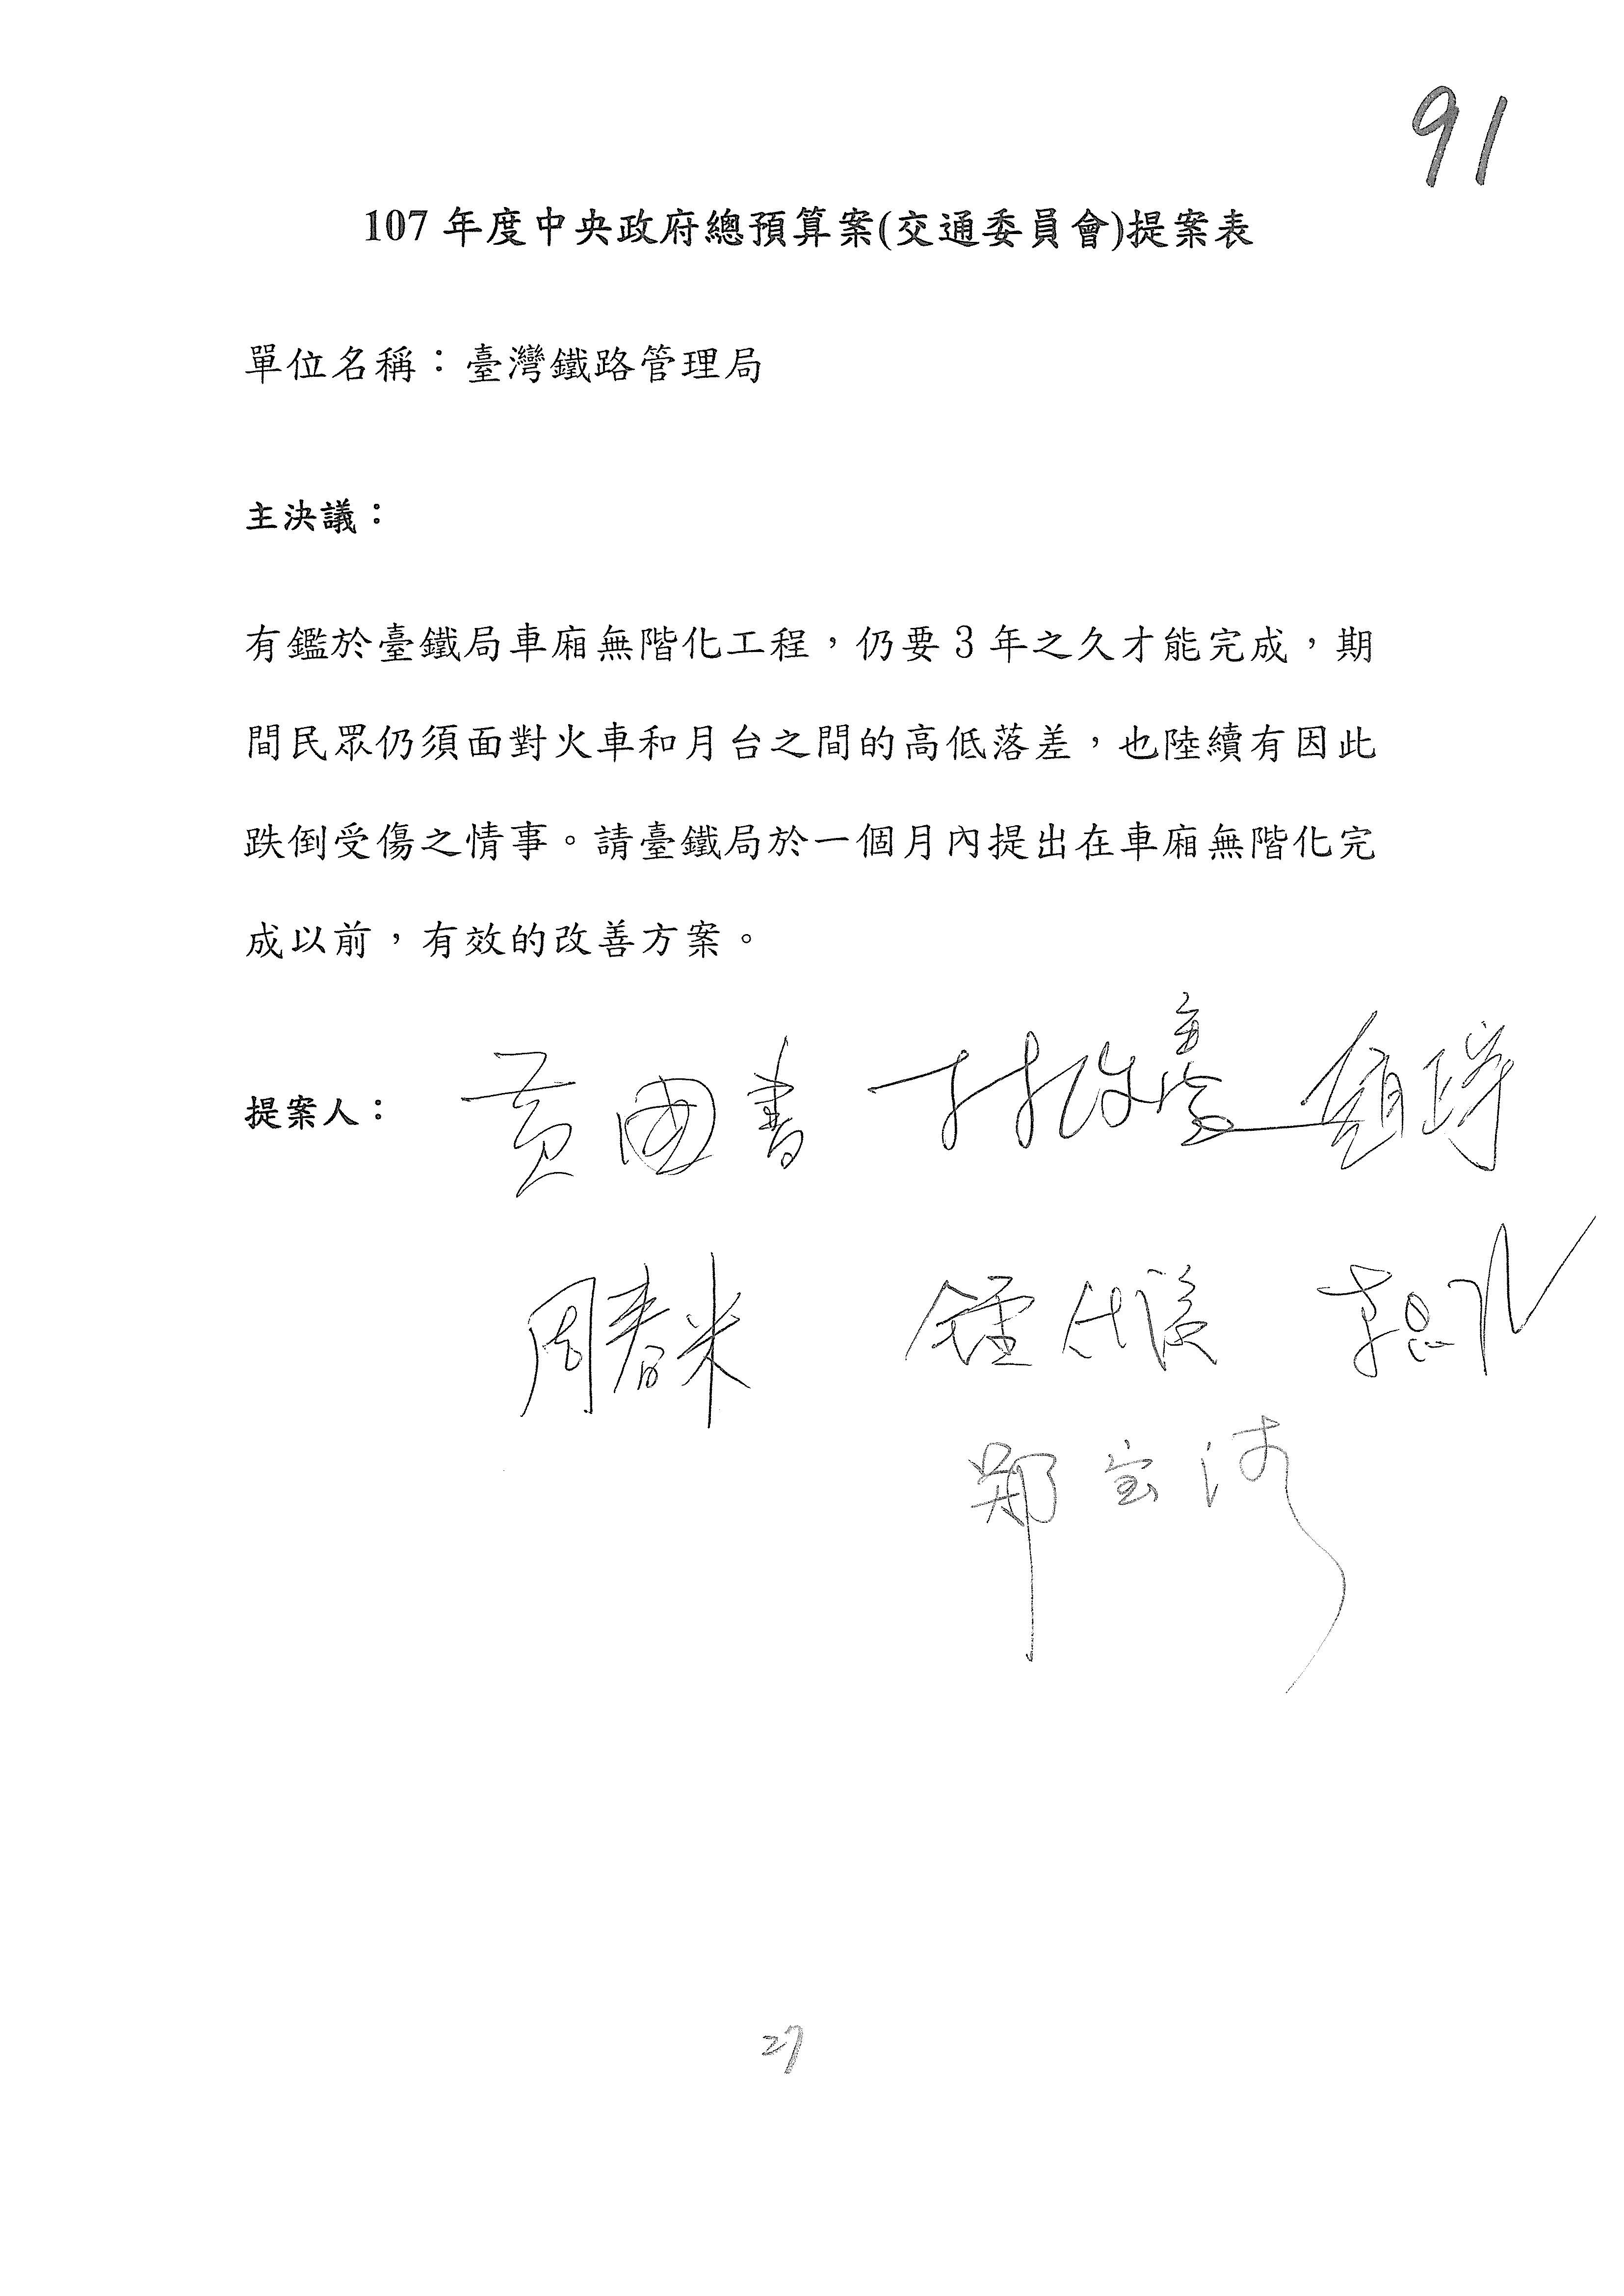 91
107 年度中央政府總預算案(交通委員會)提案表
單位名稱：臺灣鐵路管理局
主決議：
有鑑於臺鐵局車廂無階化工程，仍要 3 年之久才能完成，期
間民眾仍須面對火車和月台之間的高低落差，也陸續有因此
跌倒受傷之情事。請臺鐵局於一個月內提出在車廂無階化完
成以前，有效的改善方案。
提案人：黃國書
周春米
鄭宝清
27